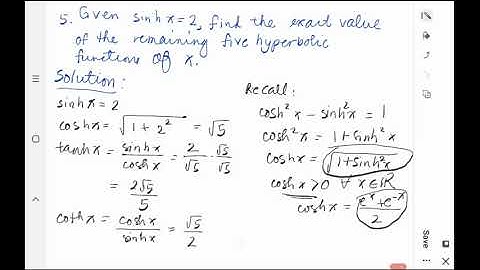 5. Given sinhx=2, find the exact value
of the remaining five hyperbolic
functions of x.
Solution:
sinhx = 2
coshx = √(1 + 2²) = √5
tanhx = sinhx/coshx = 2/√5 · √5/√5
= 2√5/5
cothx = coshx/sinhx = √5/2
Recall:
cosh²x - sinh²x = 1
cosh²x = 1 + sinh²x
coshx = √(1+sinh²x)
coshx > 0 ∀ x∈ℝ
coshx = (eˣ + e⁻ˣ)/2
Save